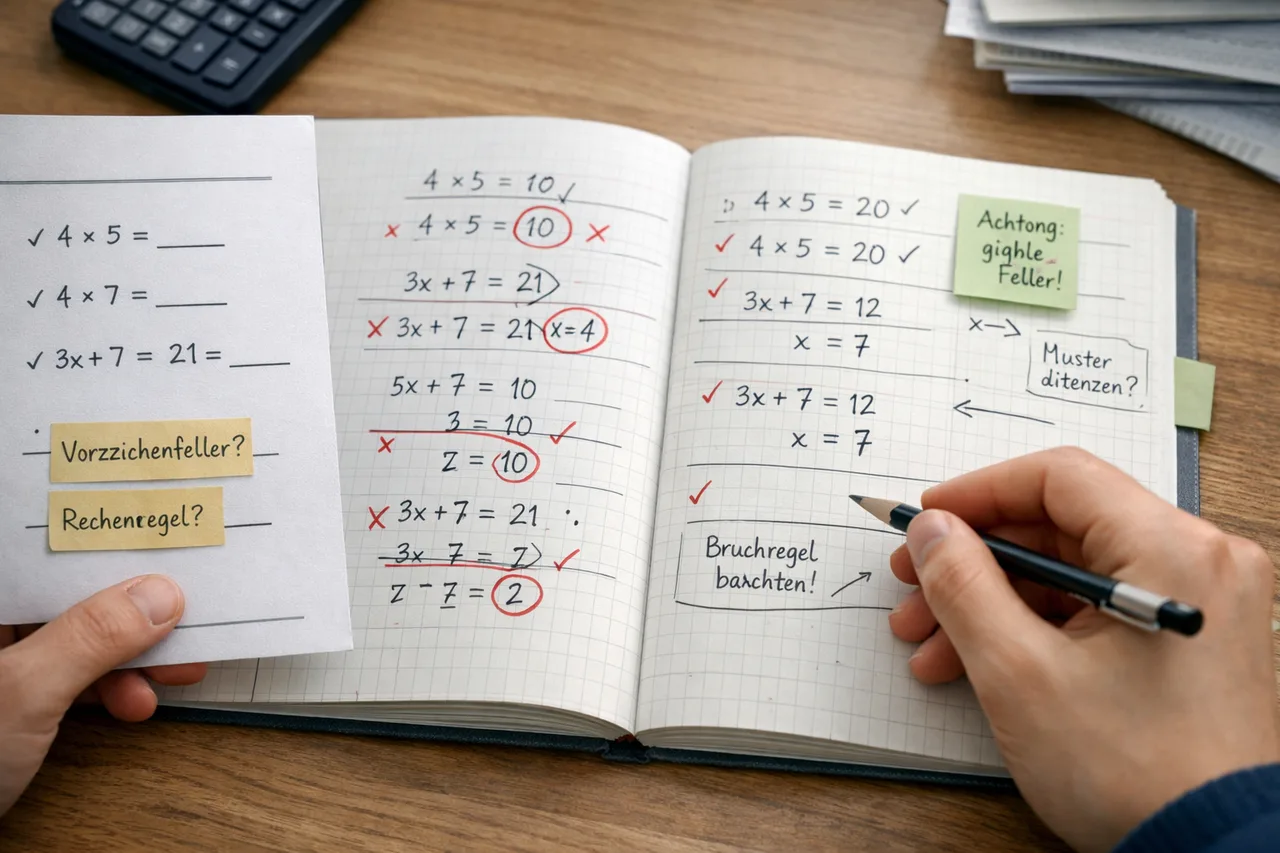 ✓ 4 × 5 = ____
✓ 4 × 7 = ____
✓ 3x + 7 = 21 = ____
Vorzzichenfeller?
Rechenregel?
4 × 5 = 10 ✓
x 4 × 5 = 10 x
3x + 7 = 21
x 3x + 7 = 21 x = 4
5x + 7 = 10
3 = 10 ✓
x z = 10
x 3x + 7 = 21
3x 7 = z ✓
z - 7 = 2
4 × 5 = 20 ✓
✓ 4 × 5 = 20 ✓
✓ 3x + 7 = 12
x = 7
✓ 3x + 7 = 12
x = 7
✓
Bruchregel
Achtong:
gighle
Feller!
x →
Muster
ditenzen?